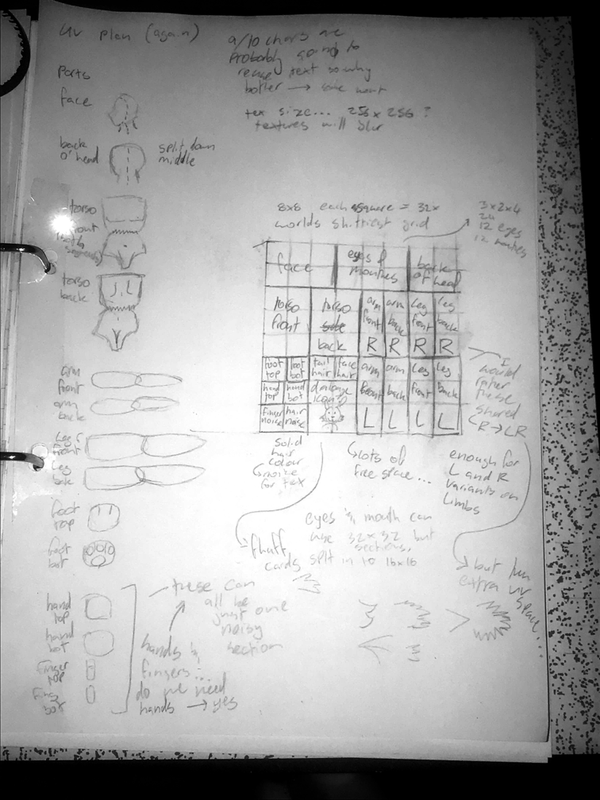 UV plan (again)
9/10 chars are
probably going to
reuse text so why
bother → some wont
tex size... 256x256?
textures will blur
parts
face
back
o' head
split down
middle
torso
front
torso
back
arm
front
arm
back
leg
front
leg
foot
top
foot
bot
hand
top
hand
bot
finger
top
finger
bot
8x8 each square = 32x
worlds shittiest grid
3x2x4
24
12 eyes
12 mouths
face
eyes &
mouths
back
of head
torso
front
torso
side
back
arm
front
arm
back
leg
front
leg
back
R R R R
foot
top
foot
bot
tail
hair
face
hair
arm
arm
leg
leg
hand
top
hand
bot
damage
icons
front
back
front
back
finger
noise
hair
noise
L L L L
I
would
rather
these
shared
R → LR
solid
hair
colour
& noise
for tex
lots of
free space...
enough for
L and R
variants on
limbs
fluff
cards
eyes & mouth can
use 32x32 but
sections
split in to 16x16
but fun
extra uv
space...
these can
all be
just one
noisy
section
hands &
fingers...
do we need
hands → yes